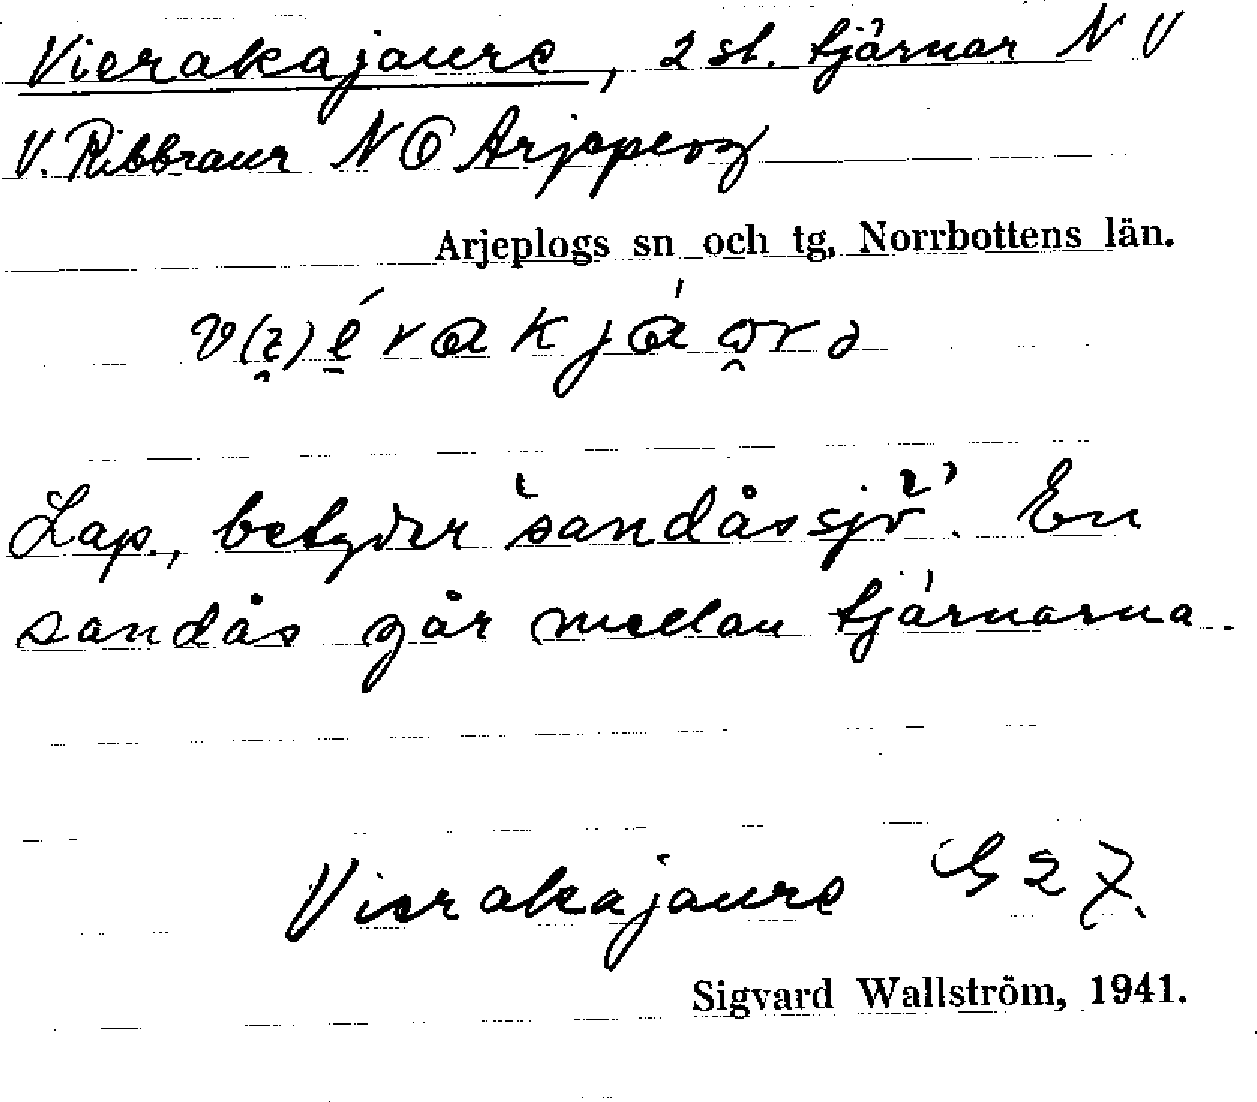 Vierakajaure, 2 st. tjärnar NV
V. Ribbraur NO Arjeplog
Arjeplogs sn och tg, Norrbottens län.
Lap., betyder "sandåssjö". En
sandås går mellan tjärnarna.
Vierakajaure G 27.
Sigvard Wallström, 1941.